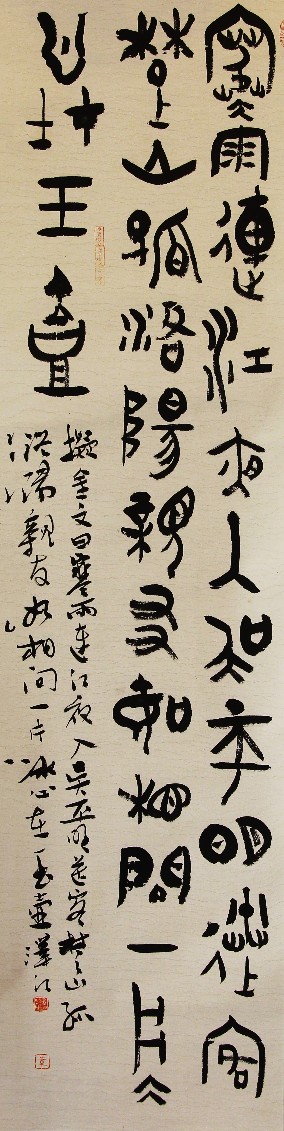 寒雨連江夜入吳平明送客
楚山孤洛陽親友如相問一片冰
心在玉壺
擬金文曰寒雨連江夜入吳平明送客楚山孤
洛陽親友如相問一片冰心在玉壺澤江